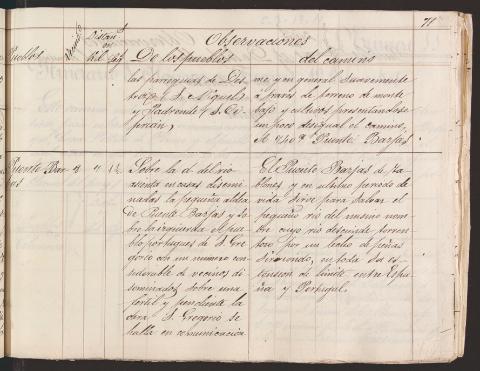 71
Observaciones
Pueblos
Vecinos
Distan
en
De los pueblos
del camino
las parroquias de
y S. Miguel
y Padrenda y S. Ci-
prian,
me y en general suavemente
á través de terreno de monte
bajo y cultivos presentandose
un poco desigual el camino,
Puente Barjas
Puente Bar-
Sobre la d. del rio
asienta en casas disemi-
nadas la pequeña aldea
de Puente Barjas y so-
bre la izquierda el pue-
blo portugues de S. Gre-
gorio con un numero con-
siderable de vecinos di-
seminados sobre una
fertil y pendiente la-
dera. S. Gregorio se
halla en comunicacion
El Puente Barjas de ta-
blones y en ultimo periodo de
vida sirve para salvar el
pequeño rio del mismo nom-
bre cuyo rio desciende torren-
toso por un lecho de peñas
sirviendo, en toda su es-
tension de limite entre Espa-
ña y Portugal.